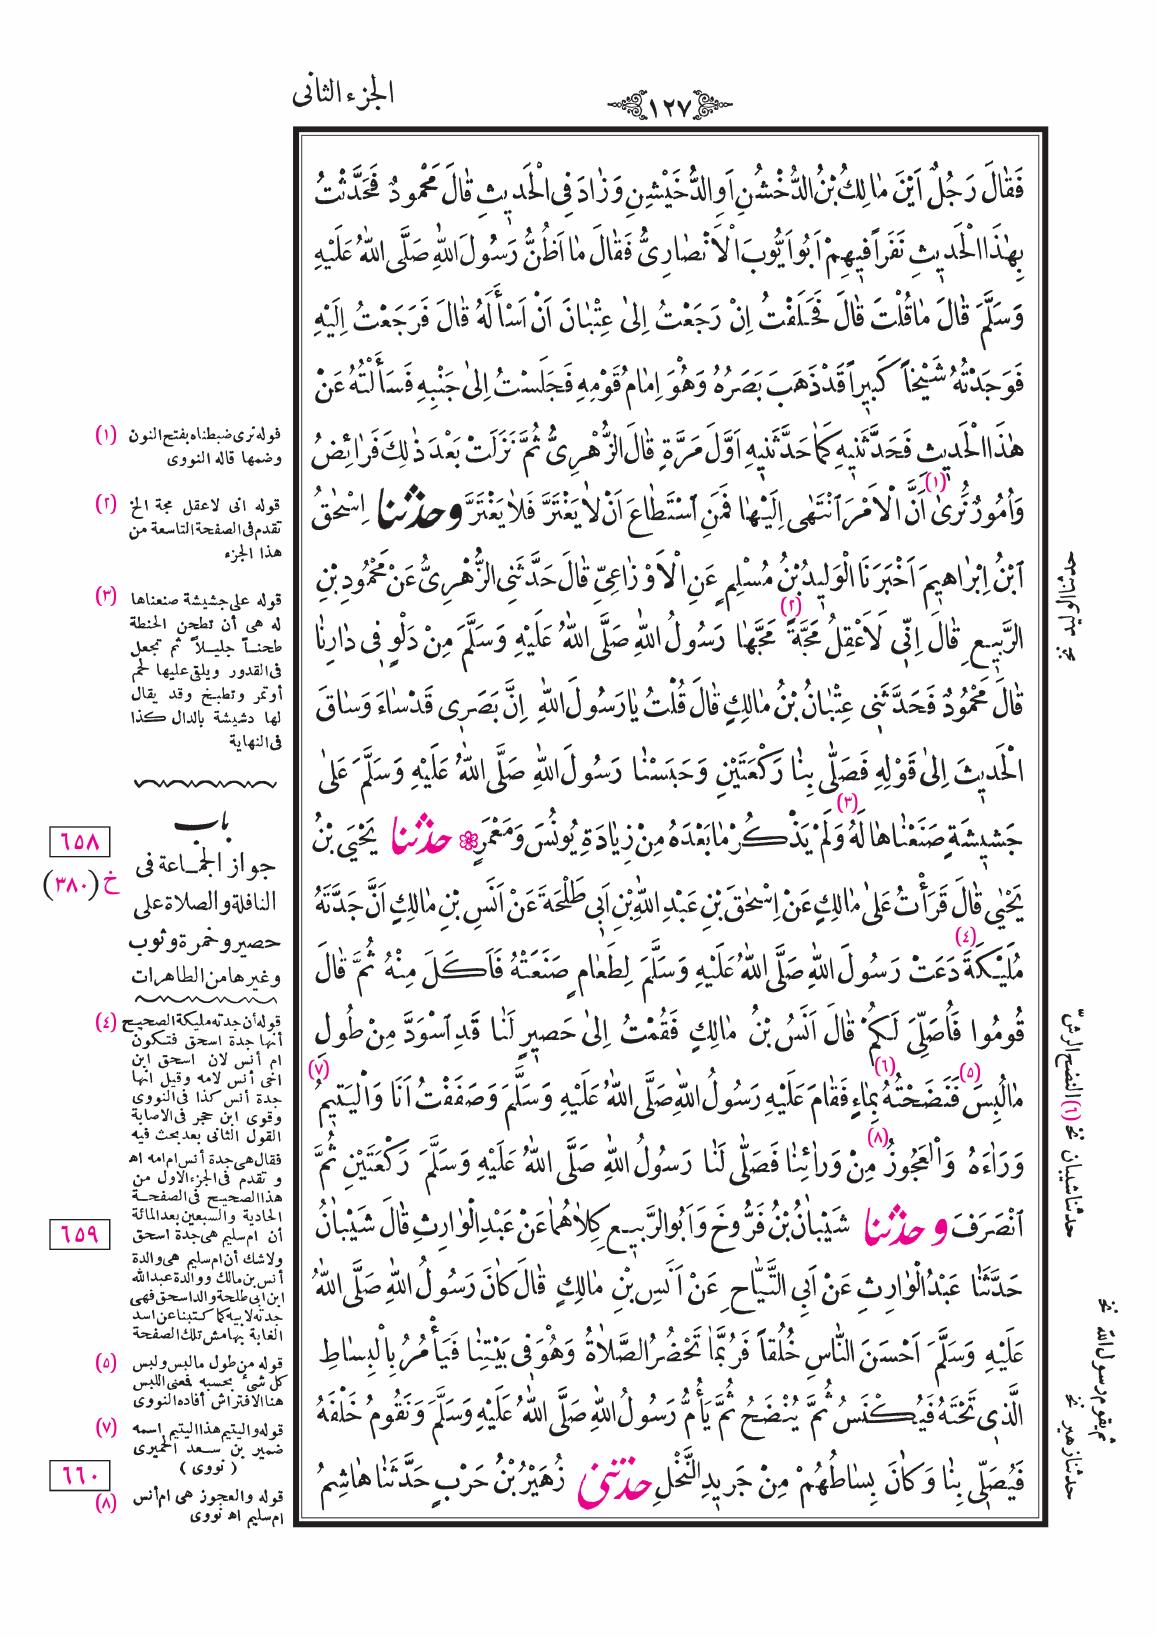 الجزء الثانى
١٢٧
فَقَالَ رَجُلٌ اَيْنَ مَالِكُ بْنُ الدُّخْشُنِ اَوِ الدُّخَيْشِنِ وَزَادَ فِى الْحَدِيثِ قَالَ مَحْمُودٌ فَحَدَّثْتُ
بِهٰذَا الْحَدِيثِ نَفَراً فِيهِمْ اَبُو اَيُّوبَ الْاَنْصَارِىُّ فَقَالَ مَا اَظُنُّ رَسُولَ اللهِ صَلَّى اللهُ عَلَيْهِ
وَسَلَّمَ قَالَ مَا قُلْتَ قَالَ فَحَلَفْتُ اِنْ رَجَعْتُ اِلىٰ عِتْبَانَ اَنْ اَسْأَلَهُ قَالَ فَرَجَعْتُ اِلَيْهِ
فَوَجَدْتُهُ شَيْخاً كَبِيراً قَدْ ذَهَبَ بَصَرُهُ وَهُوَ اِمَامُ قَوْمِهِ فَجَلَسْتُ اِلىٰ جَنْبِهِ فَسَأَلْتُهُ عَنْ
هٰذَا الْحَدِيثِ فَحَدَّثَنِيهِ كَمَا حَدَّثَنِيهِ اَوَّلَ مَرَّةٍ قَالَ الزُّهْرِىُّ ثُمَّ نَزَلَتْ بَعْدَ ذٰلِكَ فَرَائِضُ
وَاُمُورٌ نُرىٰ (١) اَنَّ الْاَمْرَ انْتَهٰى اِلَيْهَا فَمَنِ اسْتَطَاعَ اَنْ لَا يَغْتَرَّ فَلَا يَغْتَرَّ وحدثنا اِسْحٰقُ
ابْنُ اِبْرَاهِيمَ اَخْبَرَنَا الْوَلِيدُ بْنُ مُسْلِمٍ عَنِ الْاَوْزَاعِىِّ قَالَ حَدَّثَنِى الزُّهْرِىُّ عَنْ مَحْمُودِ بْنِ
الرَّبِيعِ قَالَ اِنِّى لَاَعْقِلُ مَجَّةً (٢) مَجَّهَا رَسُولُ اللهِ صَلَّى اللهُ عَلَيْهِ وَسَلَّمَ مِنْ دَلْوٍ فِى دَارِنَا
قَالَ مَحْمُودٌ فَحَدَّثَنِى عِتْبَانُ بْنُ مَالِكٍ قَالَ قُلْتُ يَا رَسُولَ اللهِ اِنَّ بَصَرِى قَدْ سَاءَ وَسَاقَ
الْحَدِيثَ اِلىٰ قَوْلِهِ فَصَلَّى بِنَا رَكْعَتَيْنِ وَحَبَسْنَا رَسُولَ اللهِ صَلَّى اللهُ عَلَيْهِ وَسَلَّمَ عَلىٰ
جَشِيشَةٍ صَنَعْنَاهَا لَهُ (٣) وَلَمْ يَذْكُرْ مَا بَعْدَهُ مِنْ زِيَادَةِ يُونُسَ وَمَعْمَرٍ حدثنا يَحْيَى بْنُ
يَحْيٰى قَالَ قَرَأْتُ عَلىٰ مَالِكٍ عَنْ اِسْحٰقَ بْنِ عَبْدِ اللهِ بْنِ اَبِى طَلْحَةَ عَنْ اَنَسِ بْنِ مَالِكٍ اَنَّ جَدَّتَهُ
مُلَيْكَةَ (٤) دَعَتْ رَسُولَ اللهِ صَلَّى اللهُ عَلَيْهِ وَسَلَّمَ لِطَعَامٍ صَنَعَتْهُ فَاَكَلَ مِنْهُ ثُمَّ قَالَ
قُومُوا فَاُصَلِّىَ لَكُمْ قَالَ اَنَسُ بْنُ مَالِكٍ فَقُمْتُ اِلىٰ حَصِيرٍ لَنَا قَدِ اسْوَدَّ مِنْ طُولِ
مَا لُبِسَ (٥) فَنَضَحْتُهُ (٦) بِمَاءٍ فَقَامَ عَلَيْهِ رَسُولُ اللهِ صَلَّى اللهُ عَلَيْهِ وَسَلَّمَ وَصَفَفْتُ اَنَا وَالْيَتِيمُ (٧)
وَرَاءَهُ وَالْعَجُوزُ (٨) مِنْ وَرَائِنَا فَصَلَّى لَنَا رَسُولُ اللهِ صَلَّى اللهُ عَلَيْهِ وَسَلَّمَ رَكْعَتَيْنِ ثُمَّ
انْصَرَفَ وحدثنا شَيْبَانُ بْنُ فَرُّوخَ وَاَبُو الرَّبِيعِ كِلَاهُمَا عَنْ عَبْدِ الْوَارِثِ قَالَ شَيْبَانُ
حَدَّثَنَا عَبْدُ الْوَارِثِ عَنْ اَبِى التَّيَّاحِ عَنْ اَنَسِ بْنِ مَالِكٍ قَالَ كَانَ رَسُولُ اللهِ صَلَّى اللهُ
عَلَيْهِ وَسَلَّمَ اَحْسَنَ النَّاسِ خُلُقاً فَرُبَّمَا تَحْضُرُ الصَّلَاةُ وَهُوَ فِى بَيْتِنَا فَيَأْمُرُ بِالْبِسَاطِ
الَّذِى تَحْتَهُ فَيُكْنَسُ ثُمَّ يُنْضَحُ ثُمَّ يَأُمُّ رَسُولُ اللهِ صَلَّى اللهُ عَلَيْهِ وَسَلَّمَ وَنَقُومُ خَلْفَهُ
فَيُصَلِّى بِنَا وَكَانَ بِسَاطُهُمْ مِنْ جَرِيدِ النَّخْلِ حدثنى زُهَيْرُ بْنُ حَرْبٍ حَدَّثَنَا هَاشِمُ
(١) قوله نرى ضبطناه بفتح النون
وضمها قاله النووى
(٢) قوله انى لاعقل مجة الخ
تقدم فى الصفحة التاسعة من
هذا الجزء
(٣) قوله على جشيشة صنعناها
له هى أن تطحن الحنطة
طحنــاً جليـلاً ثم تجعل
فى القدور ويلقى عليها لحم
أوتمر وتطبخ وقد يقال
لها دشيشة بالدال كذا
فى النهاية
باب
٦٥٨
جواز الجماعة فى
خ (٣٨٠)
النافلة والصلاة على
حصير وخمرة وثوب
وغيرها من الطاهرات
(٤) قوله أن جدته مليكة الصحيح
أنها جدة اسحق فتكون
ام أنس لان اسحق ابن
اخى أنس لامه وقيل انها
جدة أنس كذا فى النووى
وقوى ابن حجر فى الاصابة
القول الثانى بعد بحث فيه
فقال هى جدة أنس ام امه اه
و تقدم فى الجزء الاول من
هذا الصحيح فى الصفحـة
الحادية والسبعين بعد المائة
٦٥٩
أن ام سليم هى جدة اسحق
ولاشك أن ام سليم هى والدة
أنس بن مالك ووالدة عبدالله
ابن ابى طلحة والد اسحق فهى
جدته لابيه كما كتبنا عن اسد
الغابة بهامش تلك الصفحة
(٥) قوله من طول ما لبس ولبس
كل شئ بحسبه فمعنى اللبس
هنا الافتراش أفاده النووى
(٧) قوله واليتيم هذا اليتيم اسمه
ضمير بن سعد الحميرى
( نووى )
٦٦٠
(٨) قوله والعجوز هى ام أنس
ام سليم اه نووى
(٦) النضح الرش
حدثنا شيبان نخ
ثم يقوم رسول الله نخ
حدثنا زهير نخ